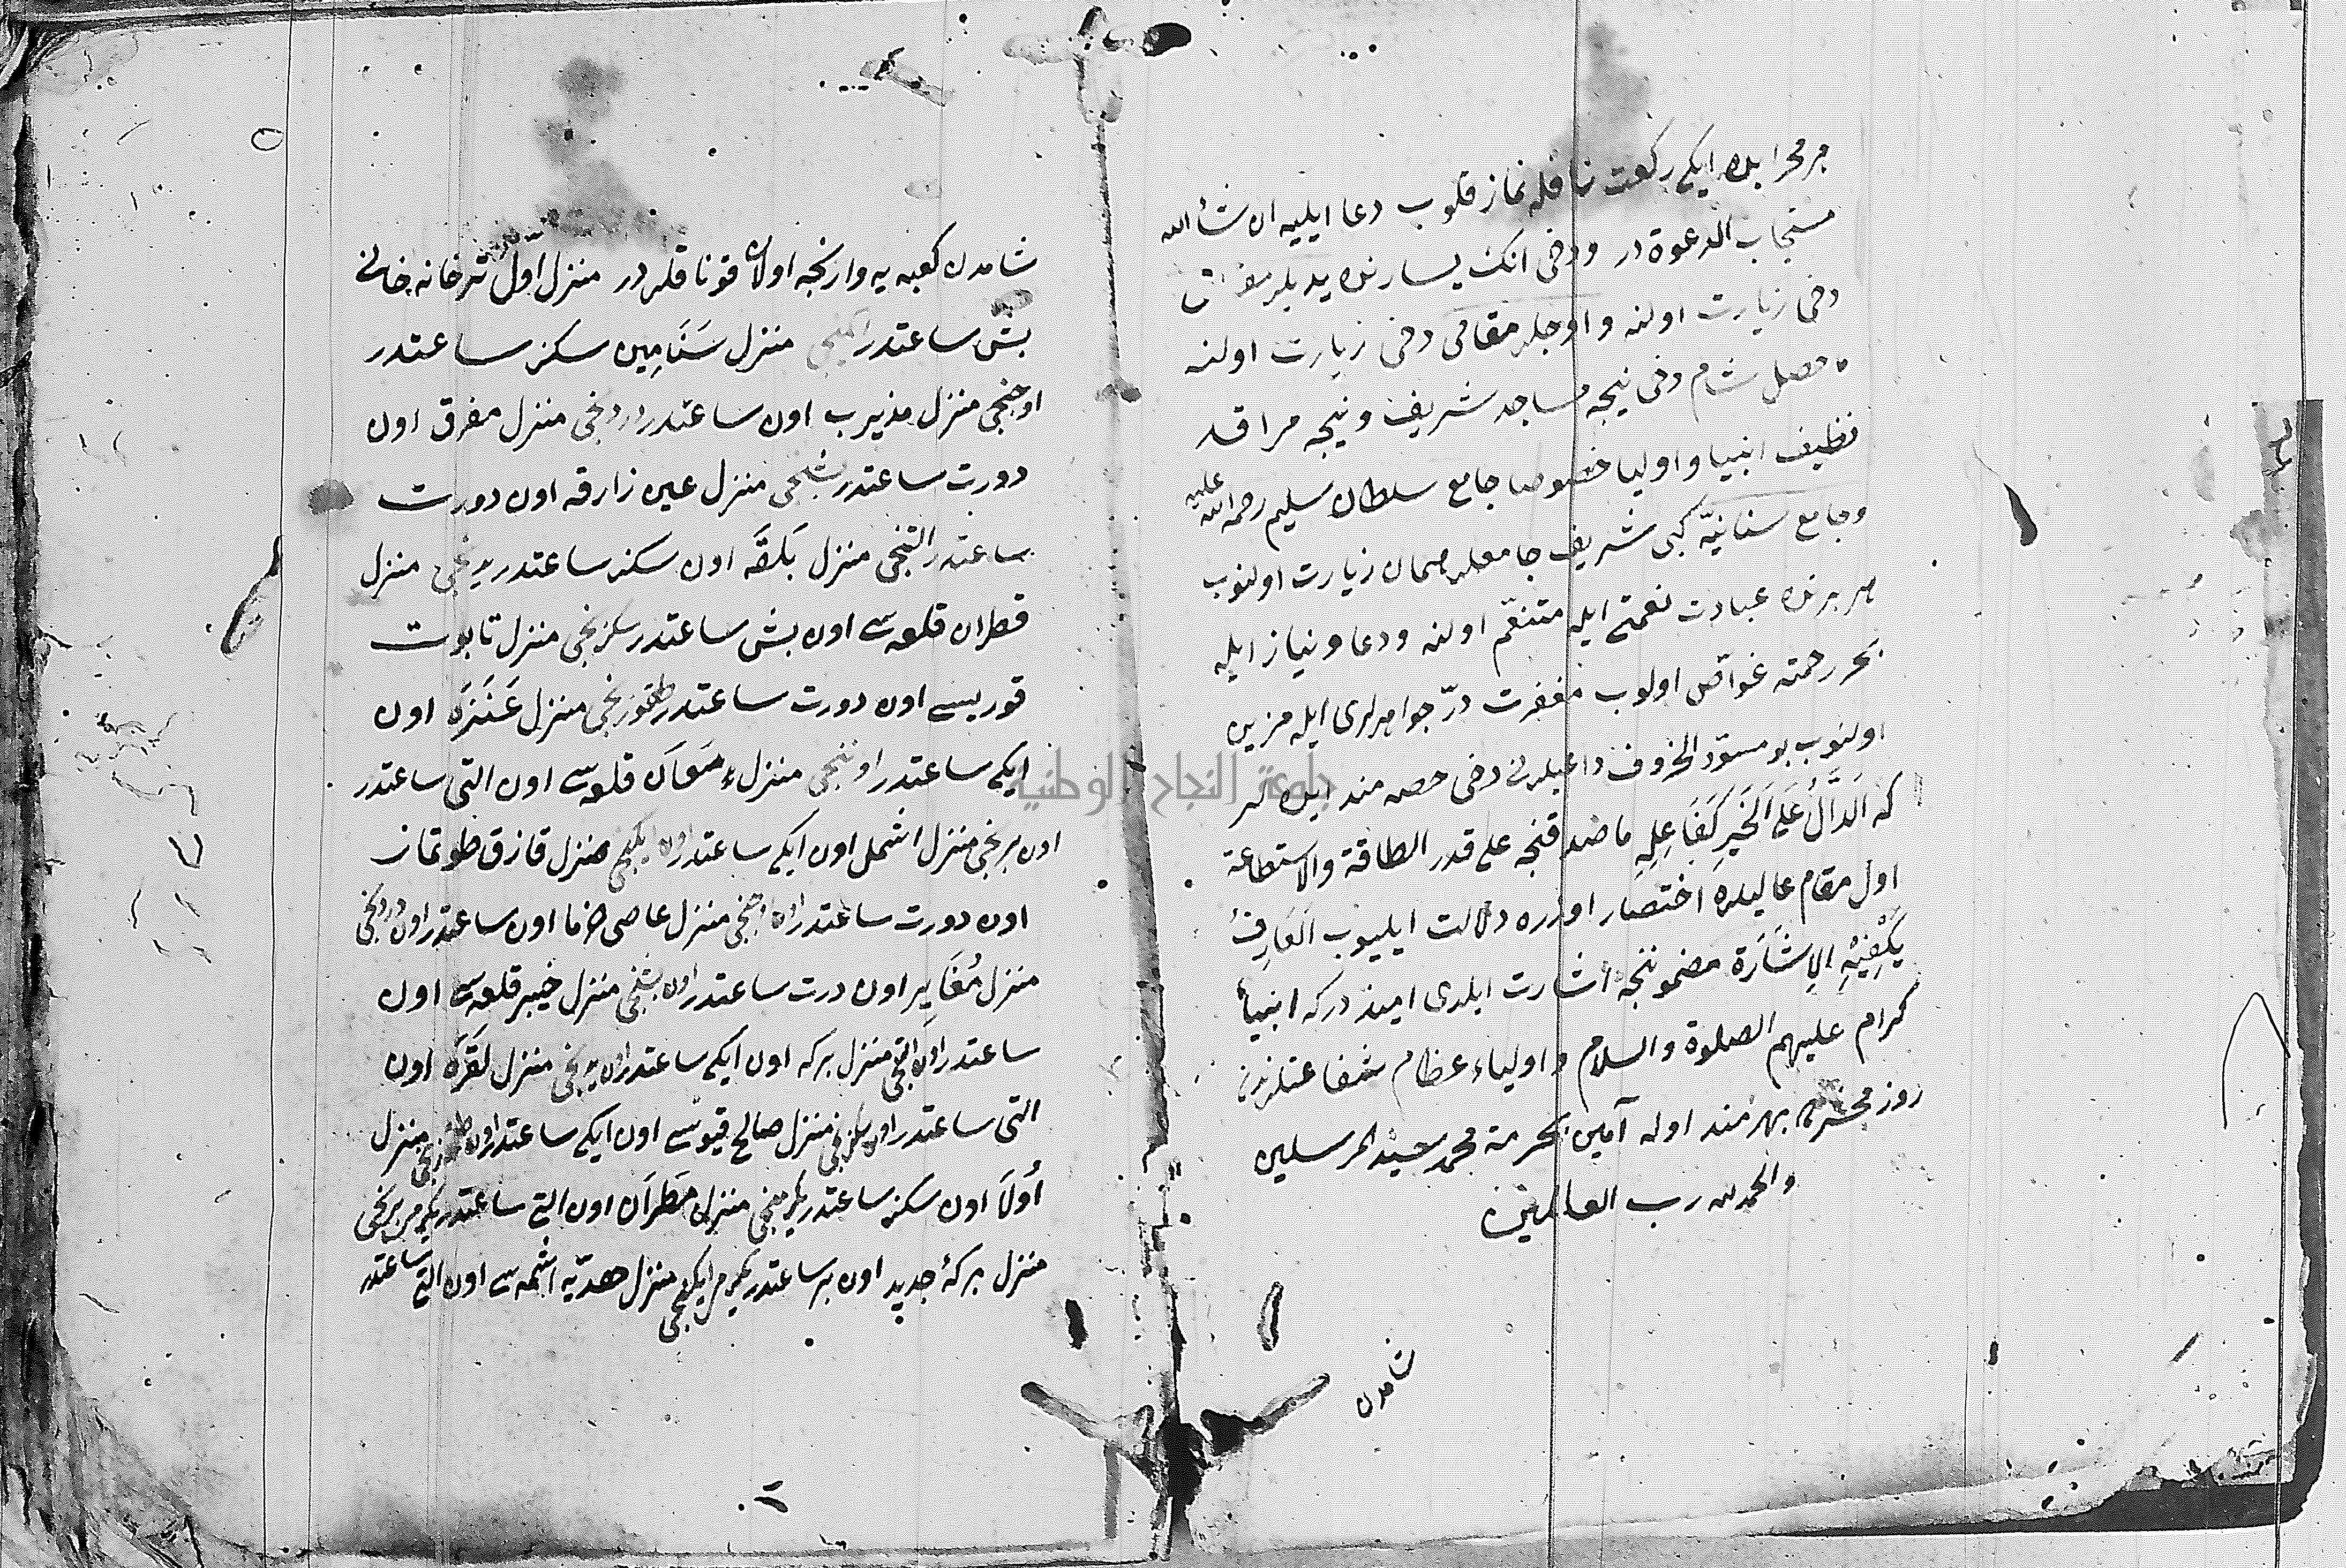 هر محرابده ایکی رکعت نافله نماز قلوب دعا ایلیه ان شاء الله
مستجاب الدعوة در ودخی انک یسارنده یدیلر
دخی زیارت اولنه واوچلر مقامی دخی زیارت اولنه
حصل شام دخی نیجه مساجد شریف ونیجه مراقد
نظیف انبیا واولیا خصوصا جامع سلطان سلیم رحمة الله علیه
وجامع سنانیّه کبی شریف جامعلر همان زیارت اولنوب
هر برنده عبادت نعمتی ایله متنعّم اولنه ودعا ونیاز ایله
بحر رحمته غوّاص اولوب مغفرت درّ جواهرلری ایله مزین
اولنوب بو مسوّد الحروف داعیلرنی دخی حصه مند ایده لر
که اَلدَّالُّ عَلَی الْخَیْرِ کَفَاعِلِهِ ماصدقنجه علی قدر الطاقة والاستطاعة
اول مقام عالیلره اختصار اوزره دلالت ایلیوب العَارِفُ
یَکْفِیْهِ الاِشَارَة مضموننجه اشارت ایلدی امیددر که انبیاء
کرام علیهم الصلوة والسلام واولیاء عظام شفاعتلرندن
روز محشرده بهرمند اوله آمین بحرمة محمد سید المرسلین
والحمد لله رب العالمین
شامدن
شامدن کعبه یه وارنجه اولان قوناقلردر منزل اوّل ترخانه خانی
بش ساعتدر ایکنجی منزل سَنَامِین سکز ساعتدر
اوچنجی منزل مذیرب اون ساعتدر دردنجی منزل مفرق اون
دورت ساعتدر بشنجی منزل عین زارقه اون دورت
ساعتدر التنجی منزل بَلقَه اون سکز ساعتدر یدنجی منزل
قطران قلعه سی اون بش ساعتدر سکزنجی منزل تابوت
قوریسی اون دورت ساعتدر طقوزنجی منزل عَنَزَه اون
ایکی ساعتدر اوننجی منزل مَعَان قلعه سی اون التی ساعتدر
اون برنجی منزل اشمل اون ایکی ساعتدر اون ایکنجی منزل قازق طوتماز
اون دورت ساعتدر اون اوچنجی منزل عاصی خرما اون ساعتدر اون دردنجی
منزل مُغَایِر اون درت ساعتدر اون بشنجی منزل خیبر قلعه سی اون
ساعتدر اون التنجی منزل برکه اون ایکی ساعتدر اون یدنجی منزل لَقَرَه اون
التی ساعتدر اون سکزنجی منزل صالح قیوسی اون ایکی ساعتدر اون طقوزنجی منزل
اُولَا اون سکز ساعتدر یکرمنجی منزل مَطَرَان اون التی ساعتدر یکرمی برنجی
منزل برکهٔ جدید اون بر ساعتدر یکرمی ایکنجی منزل هدیّه اشمه سی اون التی ساعتدر
جامعة النجاح الوطنية